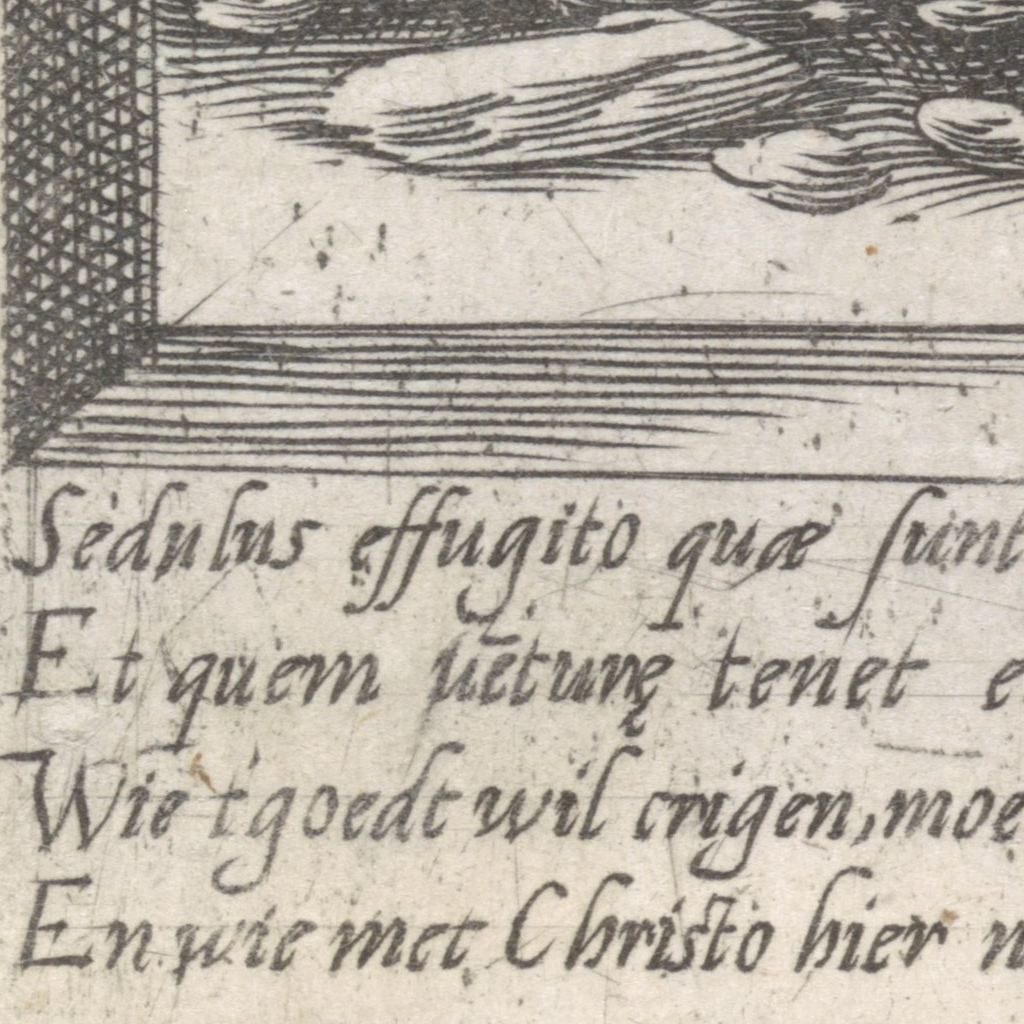 Sedulus effugito quæ ſunt
Et quem uēturę tenet e
Wie tgoedt wil crigen, moe
En wie met Christo hier n